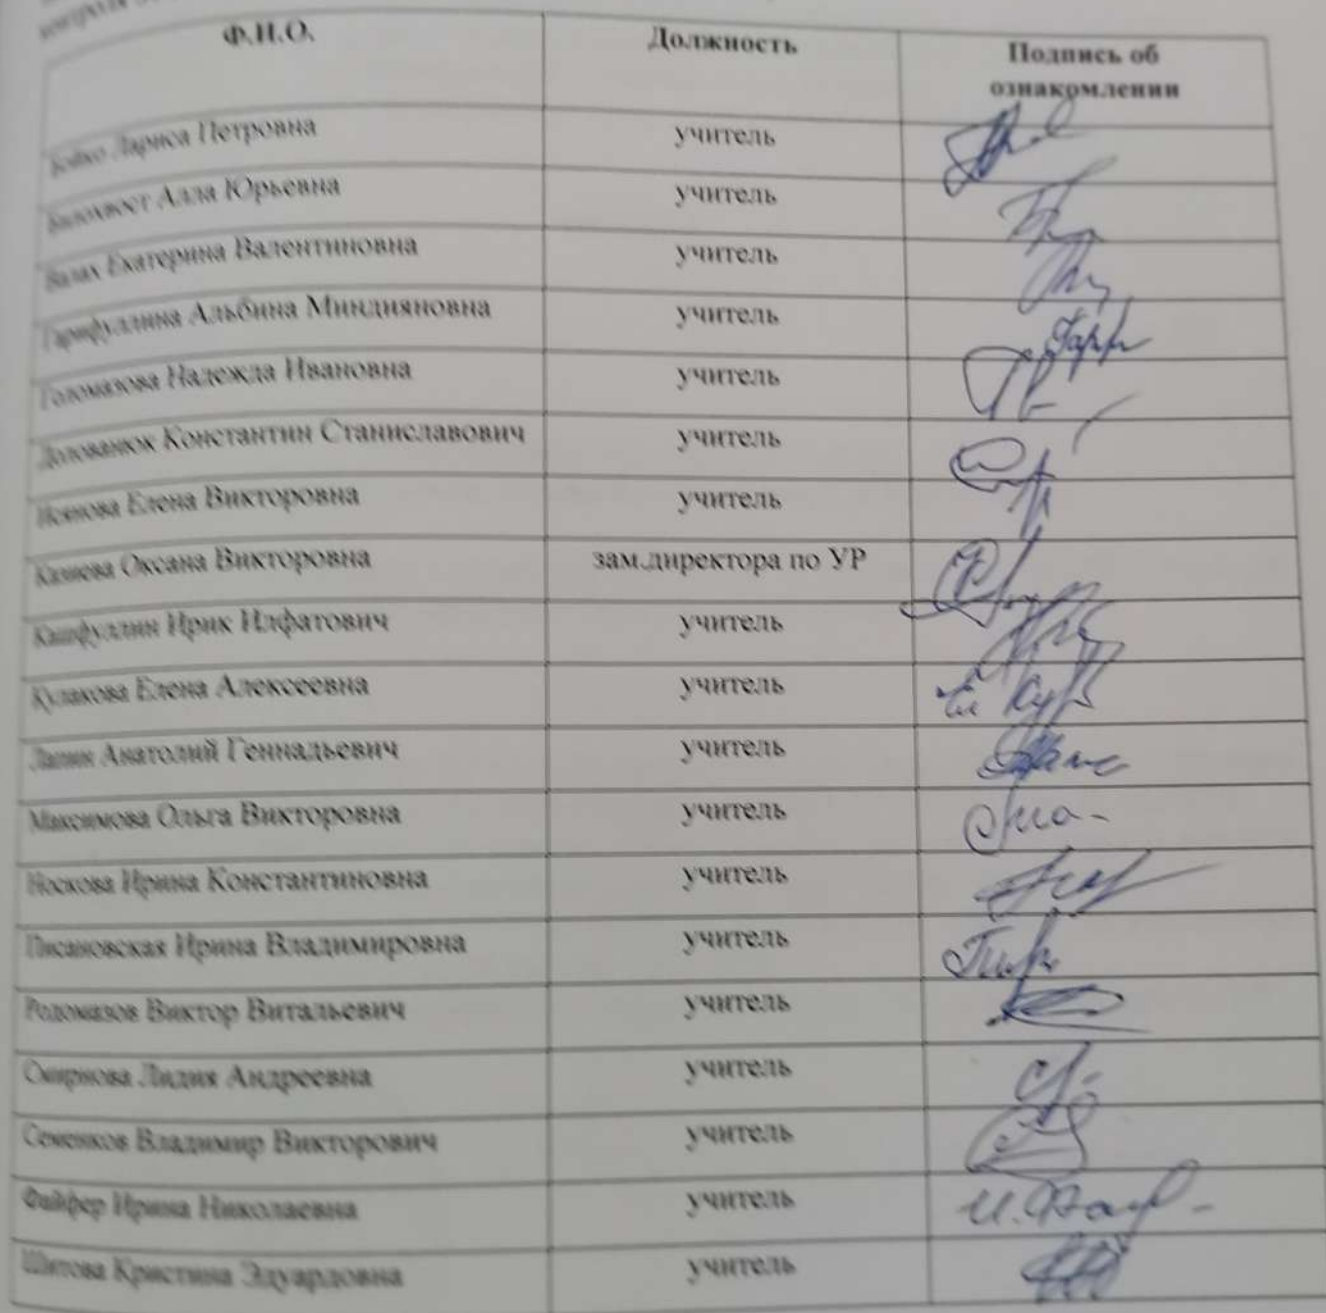 контроля
Ф.И.О. Должность Подпись об
ознакомлении
Бойко Лариса Петровна учитель
Алла Юрьевна учитель
Екатерина Валентиновна учитель
Гарифуллина Альбина Миндияновна учитель
Голомазова Надежда Ивановна учитель
Долованюк Константин Станиславович учитель
Елена Викторовна учитель
Оксана Викторовна зам.директора по УР
Кашфуллин Ирик Илфатович учитель
Кулакова Елена Алексеевна учитель
Лапин Анатолий Геннадьевич учитель
Максимова Ольга Викторовна учитель
Носкова Ирина Константиновна учитель
Писановская Ирина Владимировна учитель
Виктор Витальевич учитель
Смирнова Лидия Андреевна учитель
Семенков Владимир Викторович учитель
Файфер Ирина Николаевна учитель
Шитова Кристина Эдуардовна учитель